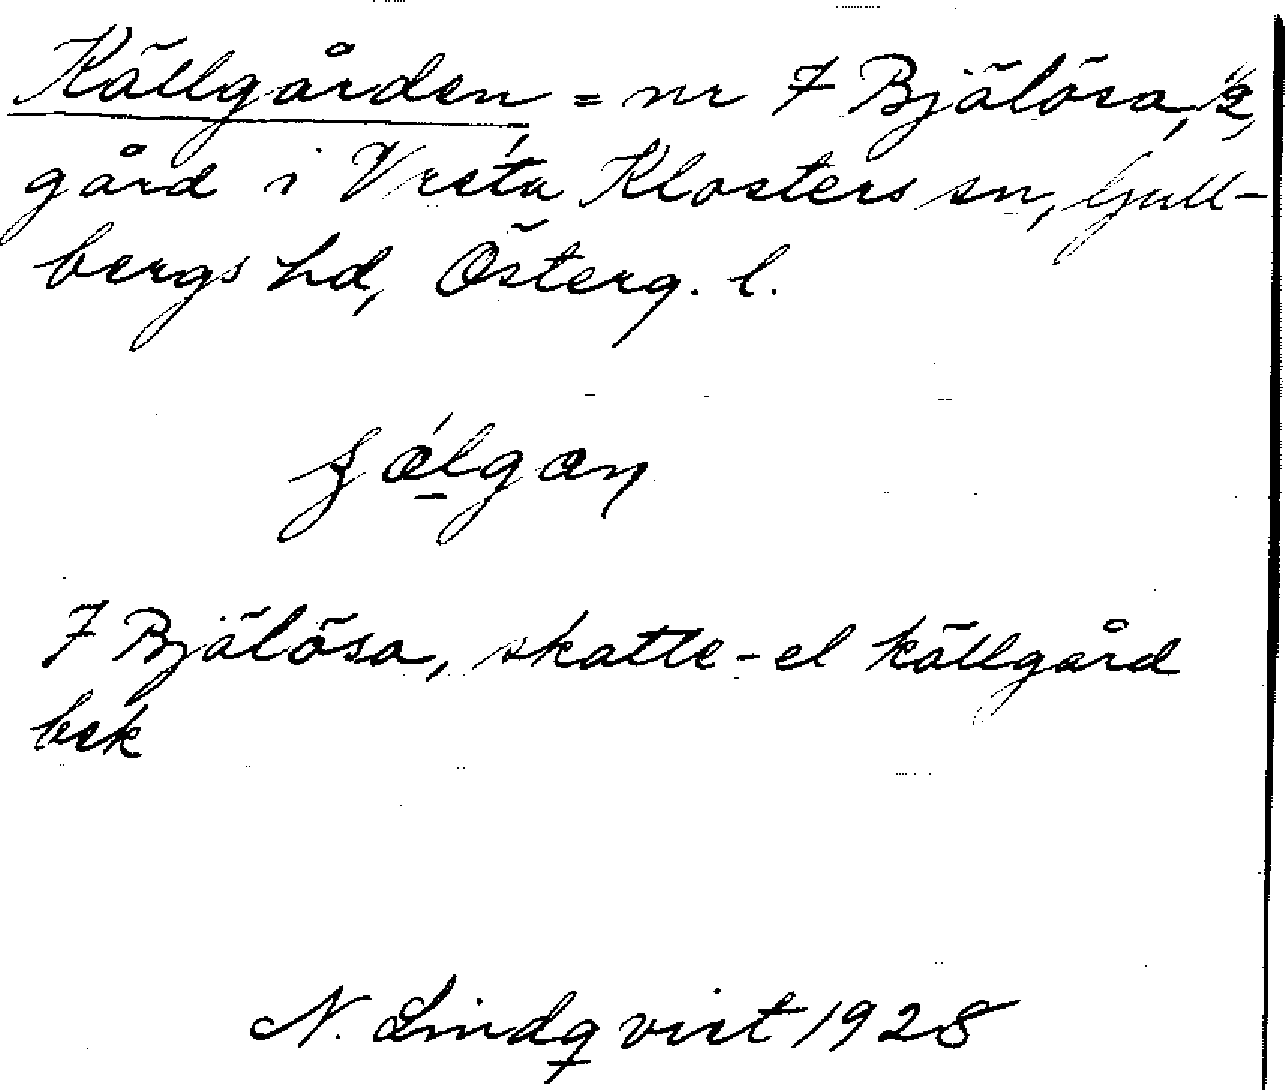 Källgården = nr 7 Bjälösa, 1/2,
gård i Vreta Klosters sn, Gull-
bergs hd, Österg. l.
7 Bjälösa, skatte- el källgård
bek
N. Lindqvist 1928